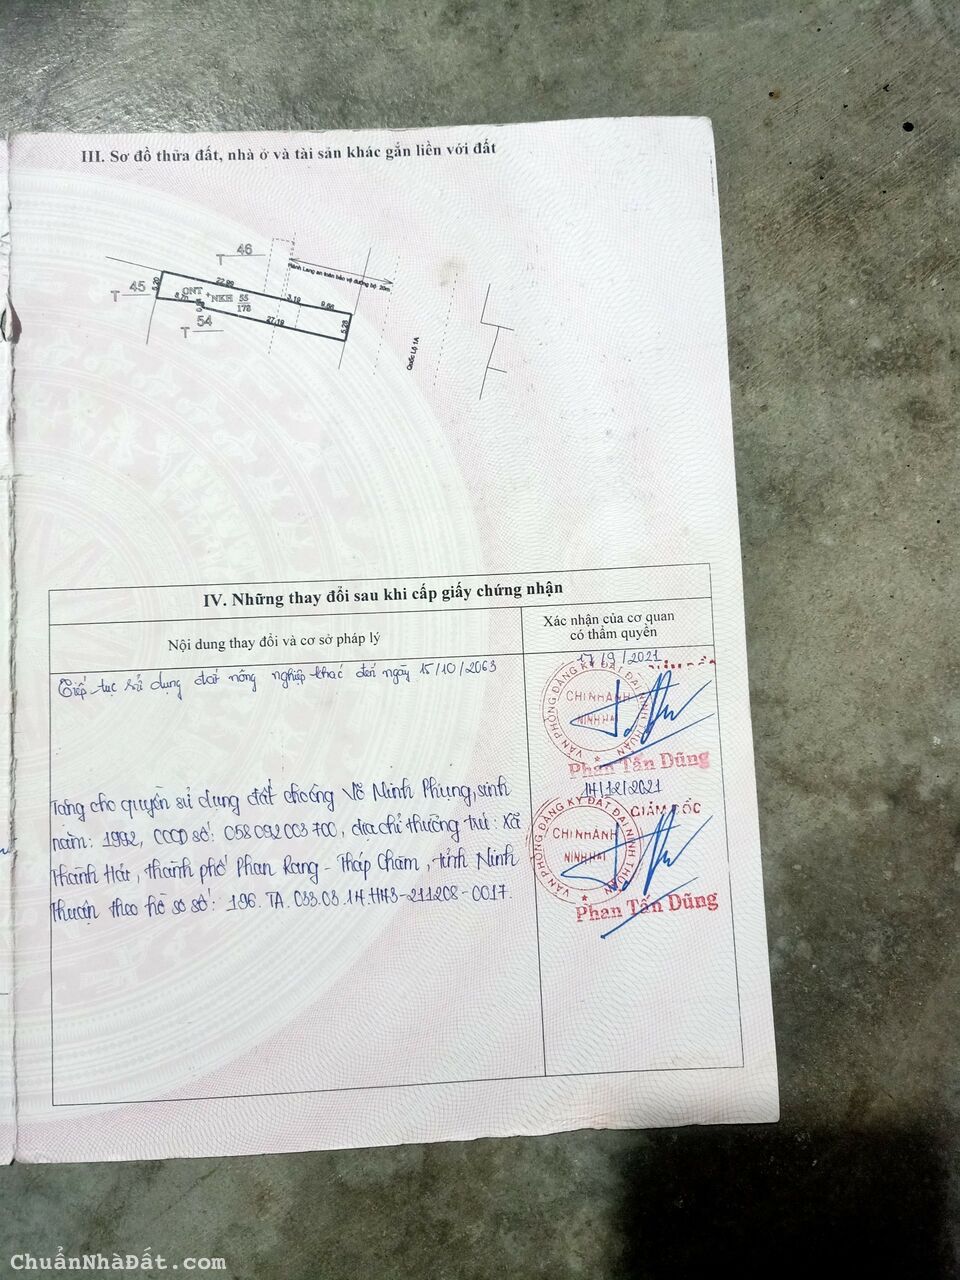 III. Sơ đồ thửa đất, nhà ở và tài sản khác gắn liền với đất
T 46
Hành Lang an toàn bảo vệ đường bộ 20m
T 45
5.20
22.98
ONT
+NKH
55
178
3.19
9.66
5.28
27.19
T 54
Quốc Lộ 1A
IV. Những thay đổi sau khi cấp giấy chứng nhận
Nội dung thay đổi và cơ sở pháp lý
Xác nhận của cơ quan
có thẩm quyền
Tiếp tục sử dụng đất nông nghiệp khác đến ngày 15/10/2063
17/9/2021
VĂN PHÒNG ĐĂNG KÝ ĐẤT ĐAI NINH THUẬN
CHI NHÁNH
NINH HẢI
Phan Tấn Dũng
Tặng cho quyền sử dụng đất cho ông Võ Minh Phụng, sinh
năm: 1992, CCCD số: 058092003700, địa chỉ thường trú: Xã
Thành Hải, thành phố Phan Rang - Tháp Chàm, tỉnh Ninh
Thuận theo hồ sơ số: 196.TA.033.03.14.HH3-211208-0017.
14/12/2021
GIÁM ĐỐC
VĂN PHÒNG ĐĂNG KÝ ĐẤT ĐAI NINH THUẬN
CHI NHÁNH
NINH HẢI
Phan Tấn Dũng
ChuẩnNhàĐất.com